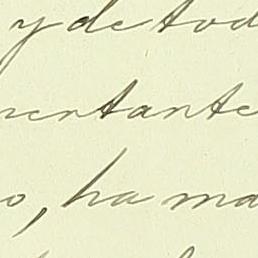 y de tod
rentante
o, ha ma